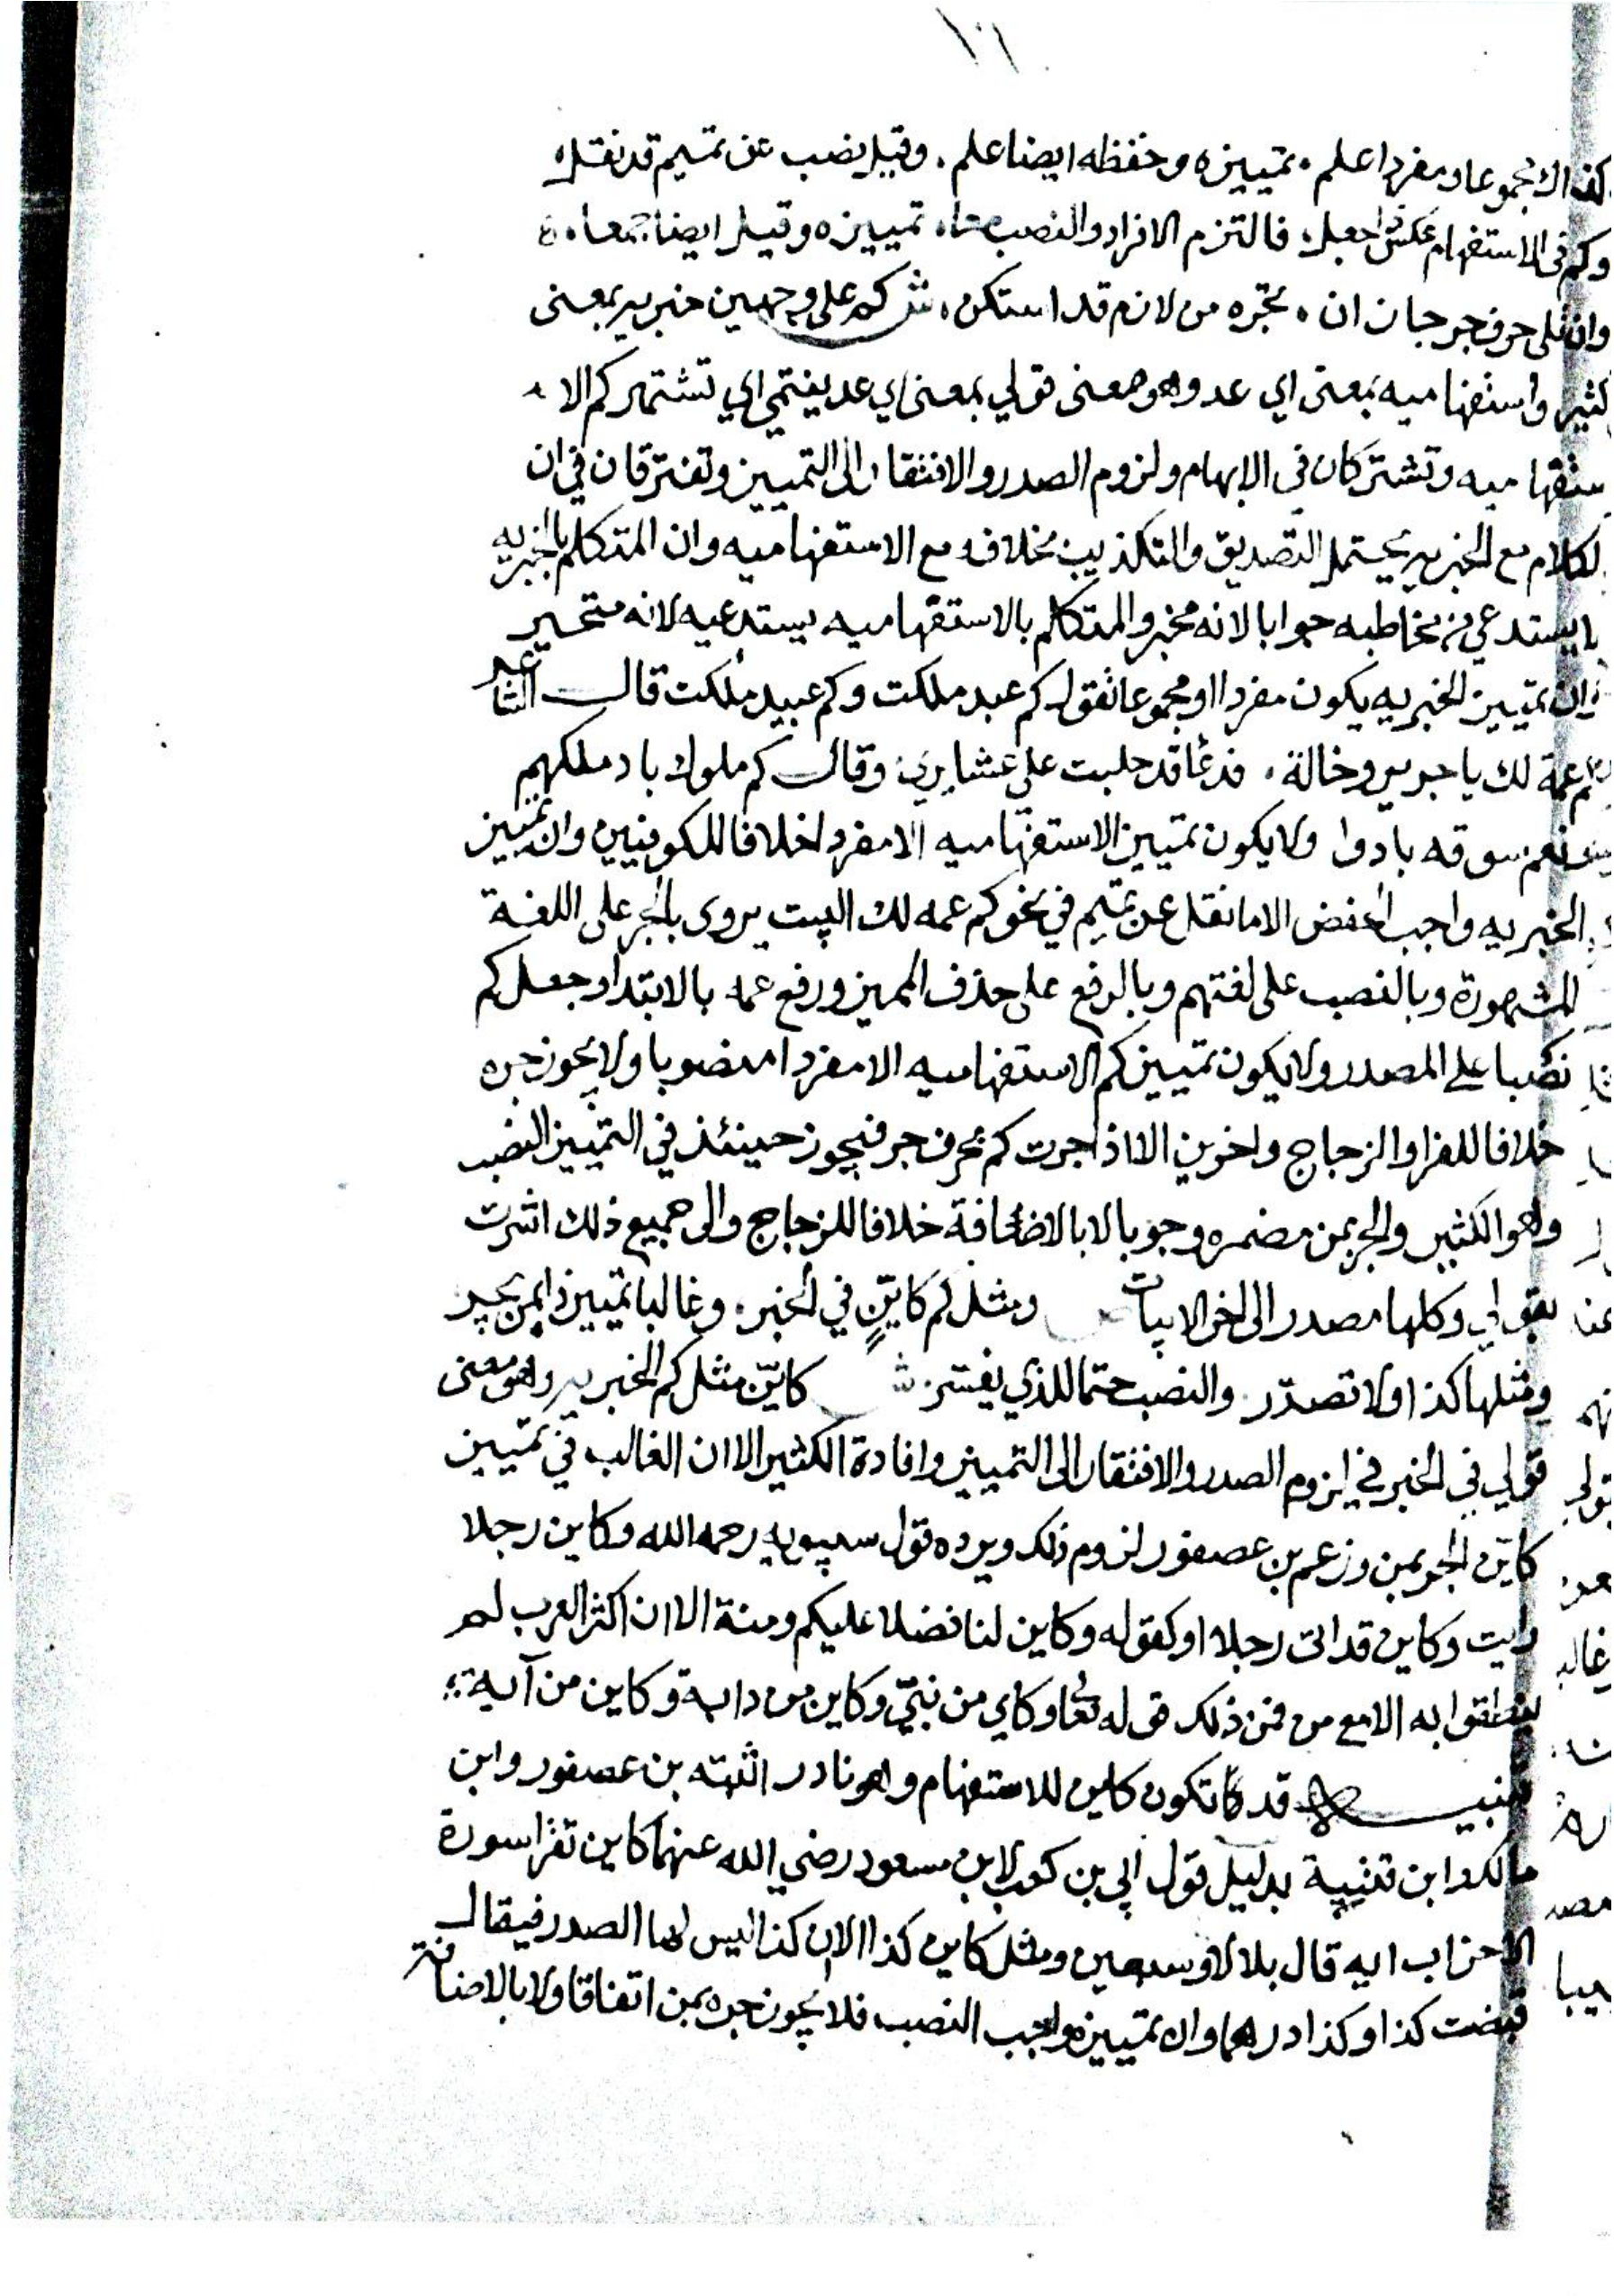 ١٠١
كذاك مجموعا ومفردا علم ٠ تمييزه وخفظه ايضا علم ٠ وقيل نصب عن تميم قد نقل
وكم فى الاستفهام عكس اجعل ٠ فالتزم الافراد والنصب معا ٠ تمييزه وقيل ايضا جمعا ٠
وان تلى حرف جر جاز ان ٠ تجره من لازم قد استكن ٠ ش كم على وجهين خبريه بمعنى
كثير واستفهاميه بمعنى اي عدد وهو معنى قولي بمعنى اي عد ينتمي اي تشتهر كم الا
ستفهاميه وتشتركان في الابهام ولزوم الصدر والافتقار الى التمييز وتفترقان في ان
لكلام مع الخبريه يحتمل التصديق والتكذيب بخلافه مع الاستفهاميه وان المتكلم بالخبريه
لا يستدعي من مخاطبه جوابا لانه مخبر والمتكلم بالاستفهاميه يستدعيه لانه متحير
وان تمييز الخبريه يكون مفردا او مجموعا تقول كم عبد ملكت وكم عبيد ملكت قال الشاعر
كم عمة لك يا جرير وخالة ٠ فدعا قد حلبت علي عشاري وقال كم ملوك باد ملكهم
ونعيم سوقه بادوا ولا يكون تمييز الاستفهاميه الا مفردا خلافا للكوفيين وان تمييز
الخبريه واجب الخفض الا ما نقل عن تميم في نحو كم عمه لك البيت يروى بالجر على اللغة
المشهورة وبالنصب على لغتهم وبالرفع على حذف المميز ورفع عمه بالابتدا وجعل كم
نصبا على المصدر ولا يكون تمييز كم الاستفهاميه الا مفردا منصوبا ولا يجوز جره
خلافا للفرا والزجاج واخرين الا اذا جرت كم بحرف جر فيجوز حينئذ في التمييز النصب
وهو الكثير والجر بمن مضمره وجوبا لا بالاضافة خلافا للزجاج والى جميع ذلك اشرت
بقولي وكلها مصدر الى اخر الابيات ومثل كم كاين في الخبر ٠ وغالبا تمييز ذا بمن يجر
ومثلها كذا ولا تصدر ٠ والنصب حتما للذي يفسر ش كاين مثل كم الخبريه وهو معنى
قولي في الخبر في لزوم الصدر والافتقار الى التمييز وافادة الكثير الا ان الغالب في تمييز
كاين الجر بمن وزعم بن عصفور لزوم ذلك ويرده قول سيبويه رحمه الله وكاين رجلا
رايت وكاين قد اتى رجلا او كقوله وكاين لنا فضلا عليكم ومنة الا ان اكثر العرب لم
ينطقوا به الا مع من فمن ذلك قوله تعا وكاي من نبيّ وكاين من دابة وكاين من آية
تنبيه قد تكون كاين للاستفهام وهو نادر اثبته بن عصفور وابن
مالك وابن قتيبة بدليل قول ابي بن كعب لابن مسعود رضي الله عنهما كاين تقرا سورة
الاحزاب ايه قال بلا ثلاثا وسبعين ومثل كاين كذا الا ان كذا ليس لها الصدر فيقال
قبضت كذا وكذا درهما وان تمييزه واجب النصب فلا يجوز جره بمن اتفاقا ولا بالاضافة